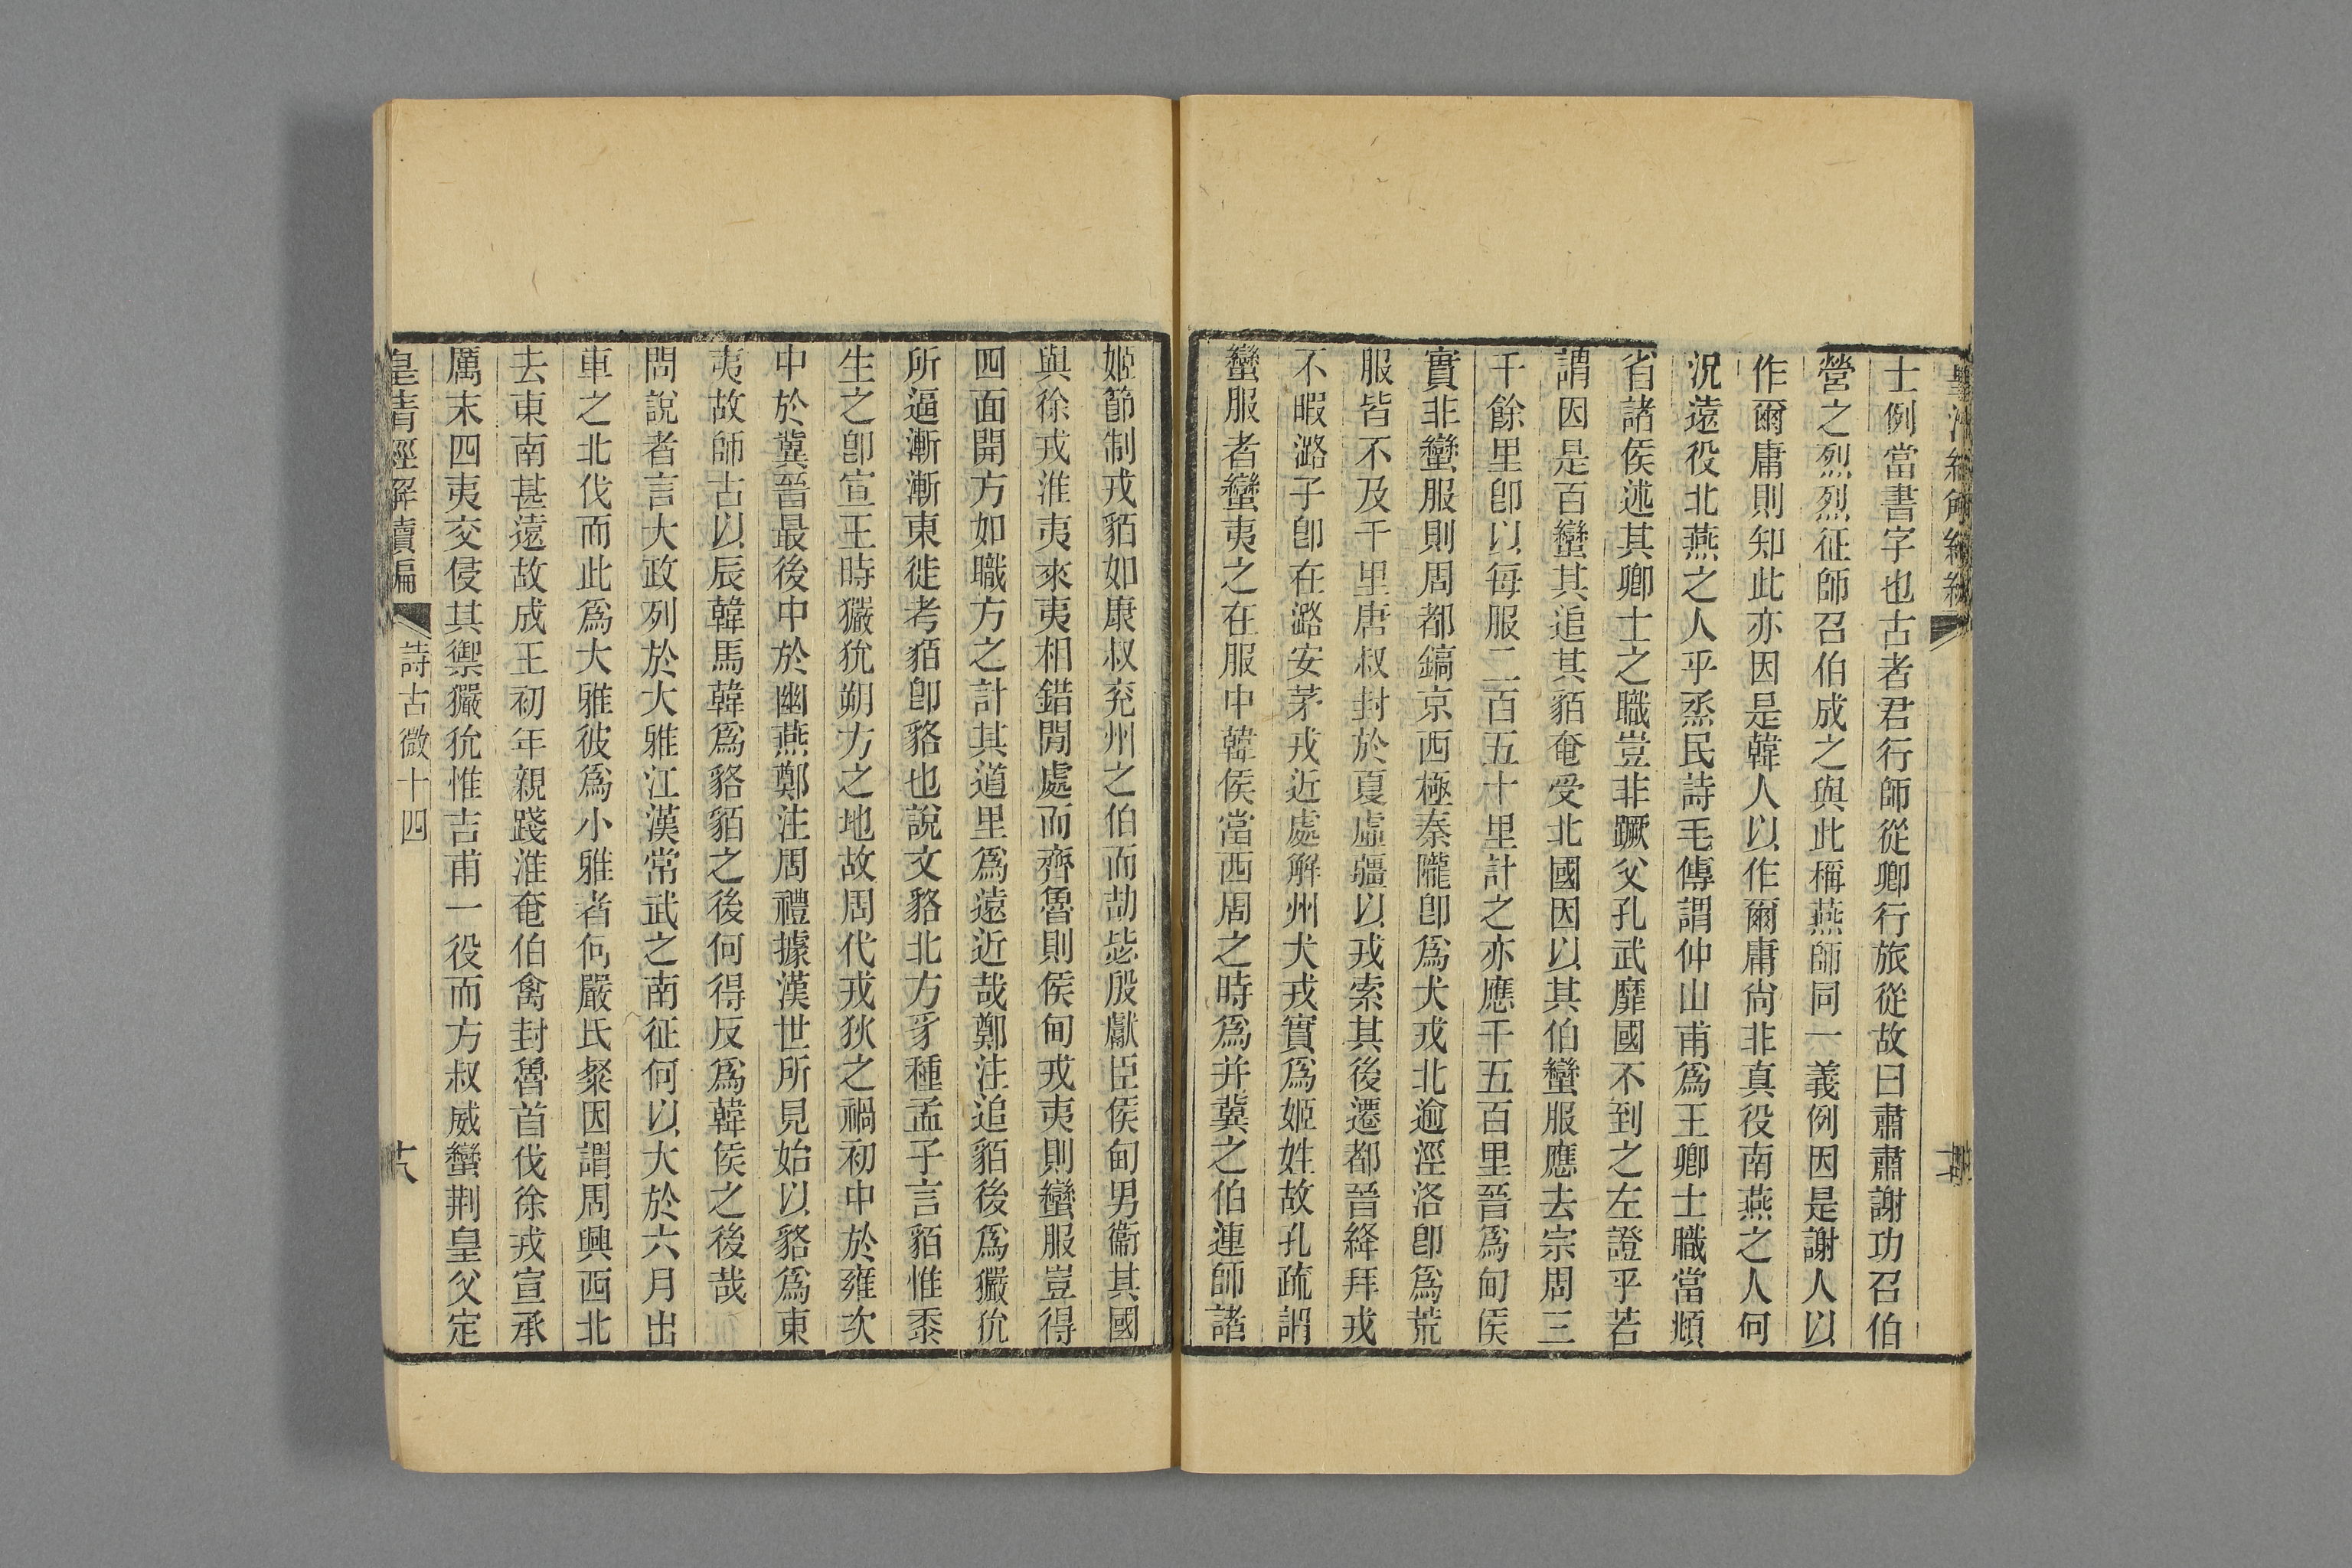 士例當書字也古者君行師從卿行旅從故曰肅肅謝功召伯
營之烈烈征師召伯成之與此稱燕師同一義例因是謝人以
作爾庸則知此亦因是韓人以作爾庸尙非真役南燕之人何
況遠役北燕之人乎烝民詩毛傳謂仲山甫爲王卿士職當頻
省諸侯述其卿士之職豈非蹶父孔武靡國不到之左證乎若
謂因是百蠻其追其貊奄受北國因以其伯蠻服應去宗周三
千餘里卽以每服二百五十里計之亦應千五百里晉爲甸侯
實非蠻服則周都鎬京西極秦隴卽爲犬戎北逾涇洛卽爲荒
服皆不及千里唐叔封於夏虛疆以戎索其後遷都晉絳拜戎
不暇潞子卽在潞安茅戎近處解州犬戎實爲姬姓故孔疏謂
蠻服者蠻夷之在服中韓侯當西周之時爲并冀之伯連師諸
姬節制戎貊如康叔兖州之伯而劼毖殷獻臣侯甸男衞其國
與徐戎淮夷來夷相錯閒處而齊魯則侯甸戎夷則蠻服豈得
四面開方如職方之計其道里爲遠近哉鄭注追貊後爲玁狁
所逼漸漸東徙考貊卽貉也說文貉北方豸種孟子言貊惟黍
生之卽宣王時玁狁朔方之地故周代戎狄之禍初中於雍次
中於冀晉最後中於幽燕鄭注周禮據漢世所見始以貉爲東
夷故師古以辰韓馬韓爲貉貊之後何得反爲韓侯之後哉
問說者言大政列於大雅江漢常武之南征何以大於六月出
車之北伐而此爲大雅彼爲小雅者何嚴氏粲因謂周興西北
去東南甚遠故成王初年親踐淮奄伯禽封魯首伐徐戎宣承
厲末四夷交侵其禦玁狁惟吉甫一役而方叔威蠻荆皇父定
皇清經解續編
詩古微十四